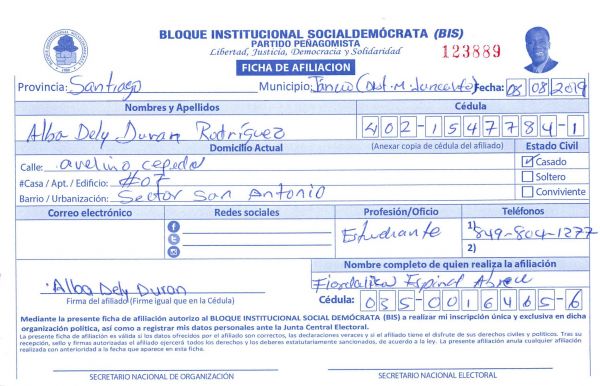 BLOQUE INSTITUCIONAL SOCIALDEMÓCRATA (BIS)
PARTIDO PEÑAGOMISTA
Libertad, Justicia, Democracia y Solidaridad
123889
FICHA DE AFILIACION
Provincia: Santiago Municipio: Janico (Dist. M. Juncalito) Fecha: 08 08 2019
Nombres y Apellidos Cédula
Alba Dely Duran Rodríguez 402-1547784-1
Domicilio Actual (Anexar copia de cédula del afiliado) Estado Civil
Calle: avelino cepeda Casado
#Casa / Apt. / Edificio: #07 Soltero
Barrio / Urbanización: Sector San Antonio Conviviente
Correo electrónico Redes sociales Profesión/Oficio Teléfonos
Estudiante 1) 849-804-1277
2)
Nombre completo de quien realiza la afiliación
Alba Dely Duran Fiordaliza Espinal Abreu
Firma del afiliado (Firme igual que en la Cédula) Cédula: 035-0016465-6
Mediante la presente ficha de afiliación autorizo al BLOQUE INSTITUCIONAL SOCIAL DEMÓCRATA (BIS) a realizar mi inscripción única y exclusiva en dicha
organización política, así como a registrar mis datos personales ante la Junta Central Electoral.
La presente ficha de afiliación es válida si los datos ofrecidos por el afiliado son correctos, las declaraciones veraces y si el afiliado tiene el disfrute de sus derechos civiles y políticos. Tras su
recepción, sello y firmas autorizadas el afiliado ejercerá todos los derechos y los deberes estatutariamente sancionados, de acuerdo a la ley. La presente afiliación anula cualquier afiliación
realizada con anterioridad a la fecha que aparece en esta ficha.
SECRETARIO NACIONAL DE ORGANIZACIÓN SECRETARIO NACIONAL ELECTORAL